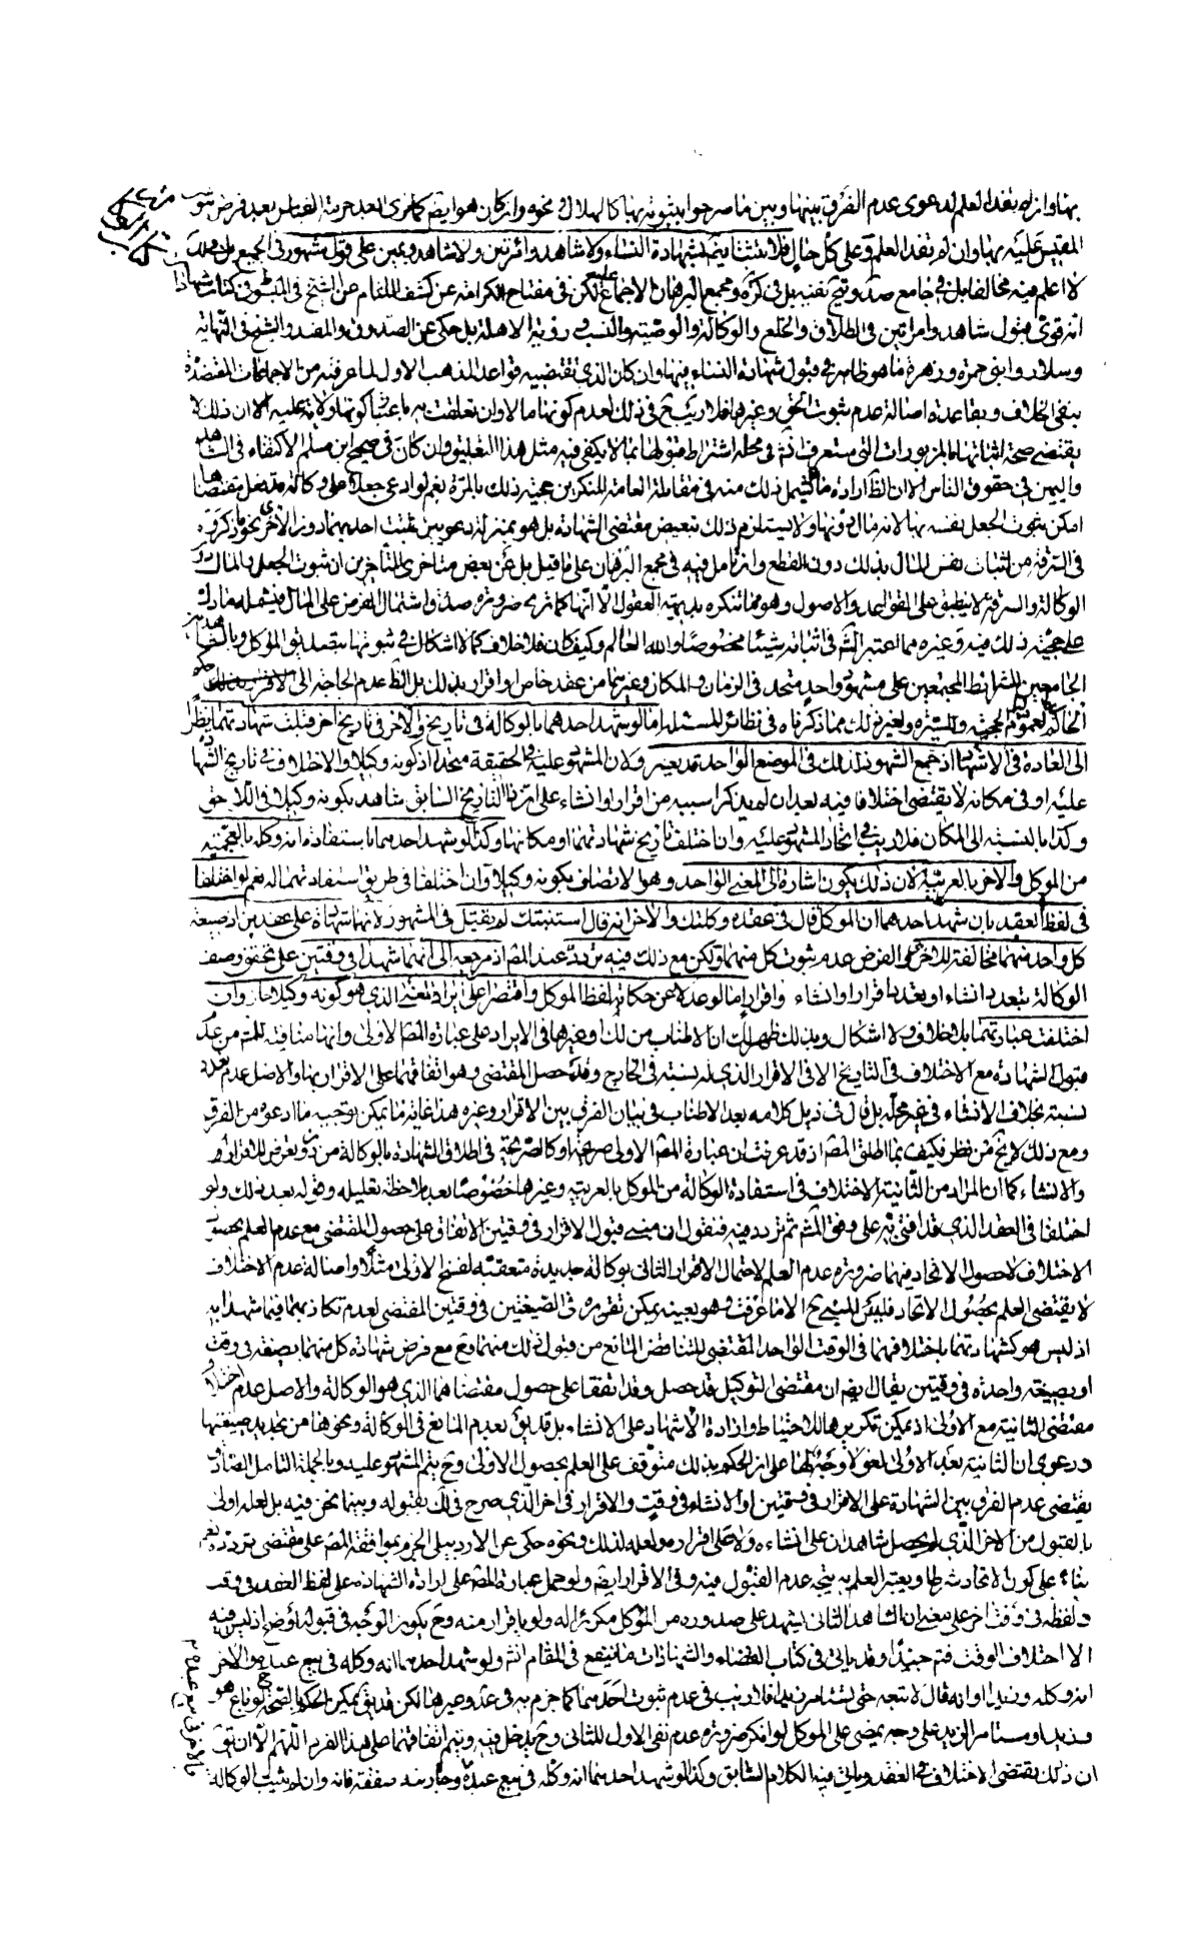 بها وان لم تفد العلم لدعوى عدم الفرق بينها وبين ما صرحوا بثبوته بها كالهلال ونحوه وان كان هو ايضا كما ترى بعد حرمة القياس بعد فرض ثبوت
المقيس عليه بها وان لم تفد العلم وعلى كل حال فلا تثبت بشهادة النساء ولا شاهد وامرئتين ولا شاهد ويمين على قول مشهور في الجميع بل
لا اعلم فيه مخالفا بل في جامع صد وتيح نفيه بل في كره ومجمع البرهان الاجماع عليه لكن في مفتاح الكرامة عن كشف اللثام عن الشيخ في المبسوط في كتاب الشهادات
انه قوى قبول شاهد وامرئتين في الطلاق والخلع والوكالة والوصية والنسب ورؤية الاهلة بل حكى عن الصدوق والمفيد والشيخ في النهاية
وسلار وابني حمزه وزهرة ما هو ظاهر في قبول شهادة النساء فيها وان كان الذي تقتضيه قواعد المذهب الاول لما عرفته من الاجماعات المعتضدة
بنفي الخلاف وبقاعدة اصالة عدم ثبوت الحق وغيرها فلا ريب ح في ذلك لعدم كونها مالا وان تعلقت به باعتبار كونها ولاية عليه الا ان ذلك لا
يقتضي صحة اثباتها بالمزبورات التي ستعرف ثم في محله اشتراط قبولها بما لا يكفي فيه مثل هذا التعليق وان كان في صحيح ابن مسلم الاكتفاء في الشاهد
واليمين في حقوق الناس الا ان الظ ارادة ما يشمل ذلك منه في مقابلة العامة المنكرين حجية ذلك بالمرة نعم لو ادعى جعلا على وكالة قد فعل مقتضاها
امكن ثبوت الجعل نفسه بها لانه مال دونها ولا يستلزم ذلك تبعيض مقتضى الشهادة بل هو بمنزلة دعويين تثبت احديهما دون الاخرى نحو ما ذكروه
في السرقة من اثبات نفس المال بذلك دون القطع وان تامل فيه في مجمع البرهان على ما قيل بل عن بعض متاخري المتاخرين ان ثبوت الجعل والمال دون
الوكالة والسرقة لا ينطبق على القواعد والاصول وهو مما تنكره بديهية العقول الا انها كما ترى ضرورة صدق واشتمال الفرض على المال فيشمله ما دل
على حجية ذلك فيه وغيره مما اعتبر الشه في اثباته شيئا مخصوصا والله العالم وكيف كان فلا خلاف كما لا اشكال في ثبوتها بتصديق الموكل وبالشاهدين
الجامعين للشرايط المجتمعين على مشهود واحد متحد في الزمان والمكان وغيرهما من عقد خاص او اقرار بذلك بل الظ عدم الحاجة الى
الحاكم لعموم الحجية وللسيرة ولغير ذلك مما ذكرناه في نظائر المسئلة اما لو شهد احدهما بالوكالة في تاريخ والاخر في تاريخ اخر قبلت شهادتهما نظرا
الى العادة في الاشهاد اذ جمع الشهود لذلك في الموضع الواحد قد يعسر ولان المشهود عليه في الحقيقة متحد اذ كونه وكيلا والاختلاف في تاريخ الشهادة
عليه او في مكانه لا يقتضي اختلافا فيه بعد ان لم يذكرا سببه من اقرار او انشاء على ان ذا التاريخ السابق شاهد بكونه وكيلا في اللاحق
وكذا بالنسبة الى المكان فلا ريب في اتحاد المشهود عليه وان اختلف تاريخ شهادتهما او مكانها وكذا لو شهد احدهما باستفادة انه وكله بالعجمية
من الموكل والاخر بالعربية لان ذلك يكون اشارة الى المعنى الواحد وهو الاتصاف بكونه وكيلا وان اختلفا في طريق استفادتهما له نعم لو اختلفا
في لفظ العقد بان شهد احدهما ان الموكل قال في عقده وكلتك والاخر انه قال استنبتك لم تقبل في المشهور لانها شهادة على عقدين اذ صيغة
كل واحد منهما مخالفة للاخرى والفرض عدم ثبوت كل منهما ولكن مع ذلك فيه تردد عند المص اذ مرجعه الى انهما شهدا في وقتين على تحقق وصف
الوكالة بتعدد انشاء او بعد با قرار او انشاء واقرار اما لو عدلا عن حكاية لفظ الموكل واقتصرا على ايراد المعنى الذي هو كونه وكيلا جاز وان
اختلفت عبارتهما بلا خلاف ولا اشكال وبذلك ظهر لك ان الاطناب من لك وغيرها في الايراد على عبارة المص الاولى وانها منافية للمتن من عدم
قبول الشهادة مع الاختلاف في التاريخ الا في الاقرار الذي له نسبة في الخارج وقد حصل المقتضي وهو اتفاقهما على الاقرار بها والاصل عدم تعدد
نسبته بخلاف الانشاء في غير محله بل قال في ذيل كلامه بعد الاطناب في بيان الفرق بين الاقرار وغيره هذا غاية ما يمكن توجيه ما ادعوه من الفرق
ومع ذلك لا يخ من نظر فكيف بما اطلق المص اذ قد عرفت ان عبارة المص الاولى صريحة او كالصريحة في اطلاق الشهادة بالوكالة من دون تعرض للاقرار
والانشاء كما ان المراد من الثانية الاختلاف في استفادة الوكالة من الموكل بالعربية وغيرها خصوصا بعد ملاحظة تعليله وقوله بعد ذلك ولو
اختلفا في العقد الذي قد افتى به على وفق المش ثم تردد فيه فنقول ان مبنى قبول الاقرار في وقتين الاتفاق على حصول المقتضي مع عدم العلم بحصول
الاختلاف لا حصول الاتحاد فيهما ضرورة عدم العلم لاحتمال الاقرار الثاني بوكالة جديدة متعقبة لفسخ الاولى مثلا واصالة عدم الاختلاف
لا يقتضي العلم بحصول الاتحاد فليس المبنى ح الا ما عرفت وهو بعينه يمكن تقريره في الصيغتين في وقتين المقتضي لعدم تكاذبهما فيما شهدا به
اذ ليس هو كشهادتهما باختلافهما في الوقت الواحد المقتضي للتناقض المانع من قبول ذلك منهما مع مع فرض شهادة كل منهما بصيغة في وقت
او بصيغة واحدة في وقتين يقال ايضا ان مقتضي التوكيل قد حصل وقد اتفقا على حصول مقتضاهما الذي هو الوكالة والاصل عدم اختلاف
مقتضى الثانية مع الاولى اذ يمكن تكريرها للاحتياط وارادة الاشهاد على الانشاء بل قد يق بعدم المانع في الوكالة ونحوها من تجديد صيغتها
ودعوى ان الثانية بعد الاولى لغو لا وجه لها على ان الحكم بذلك متوقف على العلم بحصول الاولى وح يتم المشهود عليه وبالجملة التامل الصادق
يقتضي عدم الفرق بين الشهادة على الاقرار في وقتين او الانشاء في وقت والاقرار في اخر الذي صرح في لك بقبوله وبينما نحن فيه بل لعله اولى
بالقبول من الاخر الذي لم يحصل شاهدان على انشاءه ولا على اقراره ولعله لذلك ونحوه حكى عن الاردبيلي الجزم بموافقة المص على مقتضى تردده نعم
بناء على كون الاتحاد شرطا ويعتبر العلم به يتجه عدم القبول فيه وفي الاقرار ايضا ولو حمل عبارة المص على ارادة الشهادة على لفظ العقد في وقت
ولفظه في وقت اخر على معنى ان الشاهد الثاني يشهد على صدوره من الموكل مكررا له ولو باقرار منه وح يكون الوجه في قبوله اوضح اذ ليس فيه
الا اختلاف الوقت فتم جيدا وقد ياتي في كتاب القضاء والشهادات ما ينفع في المقام انش ولو شهد احدهما انه وكله في بيع عبده والاخر
انه وكله وزيدا او انه قال لا تبعه حتى تستامر زيدا فلا ريب في عدم ثبوت احدهما كما جزم به في عد وغيرها لكن قد يق يمكن الحكم بالصحة لو باع هو
وزيد او مستامرا لزيد على وجه يمضي على الموكل لو انكر ضرورة عدم نفي الاول للثاني وح يدخل فيه ويتم اتفاقهما على هذا الفرد اللهم الا ان يق
ان ذلك يقتضي الاختلاف في العقد وياتي فيه الكلام السابق وكذا لو شهد احدهما انه وكله في بيع عبده وجاريته صفقة فانه وان لم يثبت الوكالة